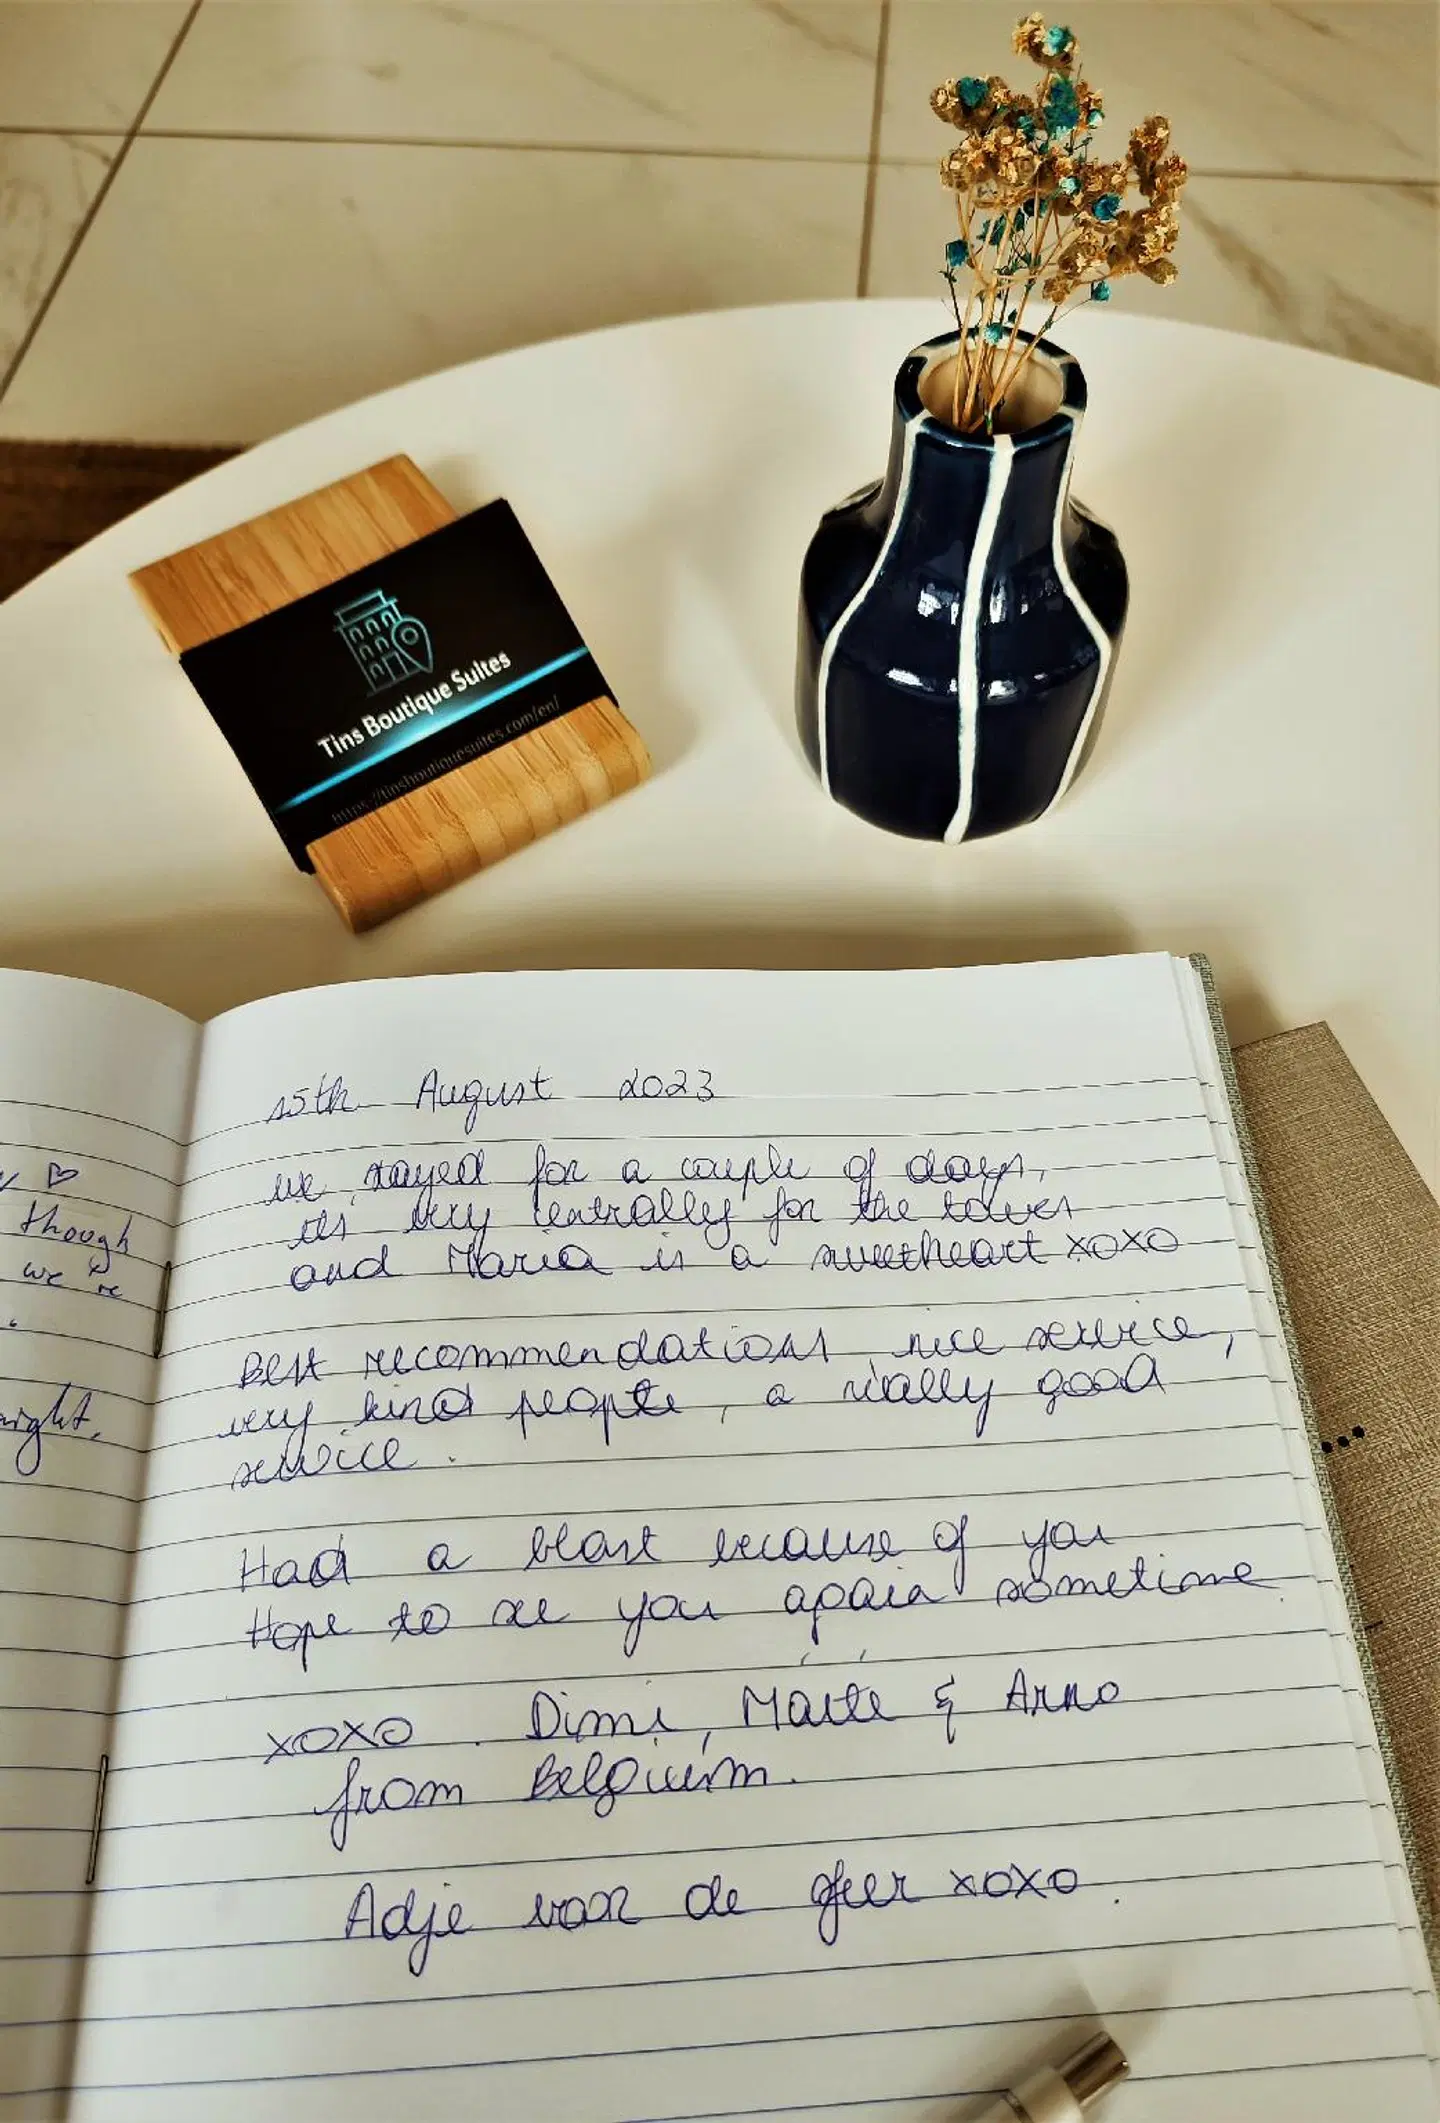 Tins Boutique Suites
https://tinsboutiquesuites.com/en/
15th August 2023
we stayed for a couple of days,
its very centrally for the tower
and Maria is a sweetheart xoxo
Best recommendations nice service,
very kind people, a really good
service.
Had a blast because of you
Hope to see you again sometime
xoxo. Dimi, Maite & Arno
from Belgium.
Adje van de
xoxo.
♡
though
we're